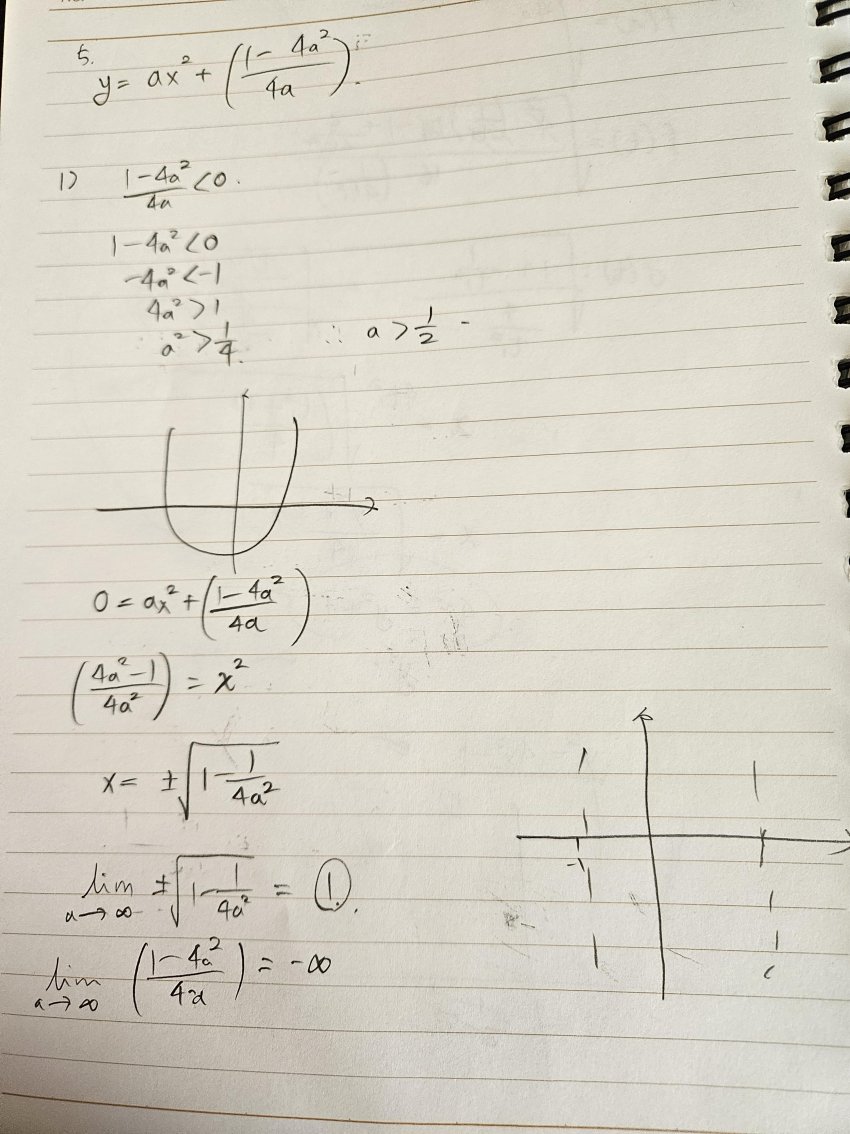 5.
y = ax² + ((1 - 4a²)/4a).
1) (1 - 4a²)/4a < 0.
1 - 4a² < 0
-4a² < -1
4a² > 1
a² > 1/4. ∴ a > 1/2
0 = ax² + ((1 - 4a²)/4a)
((4a² - 1)/4a²) = x²
x = ±√(1 - 1/4a²)
-1
lim a→∞ ±√(1 - 1/4a²) = 1.
lim a→∞ ((1 - 4a²)/4a) = -∞